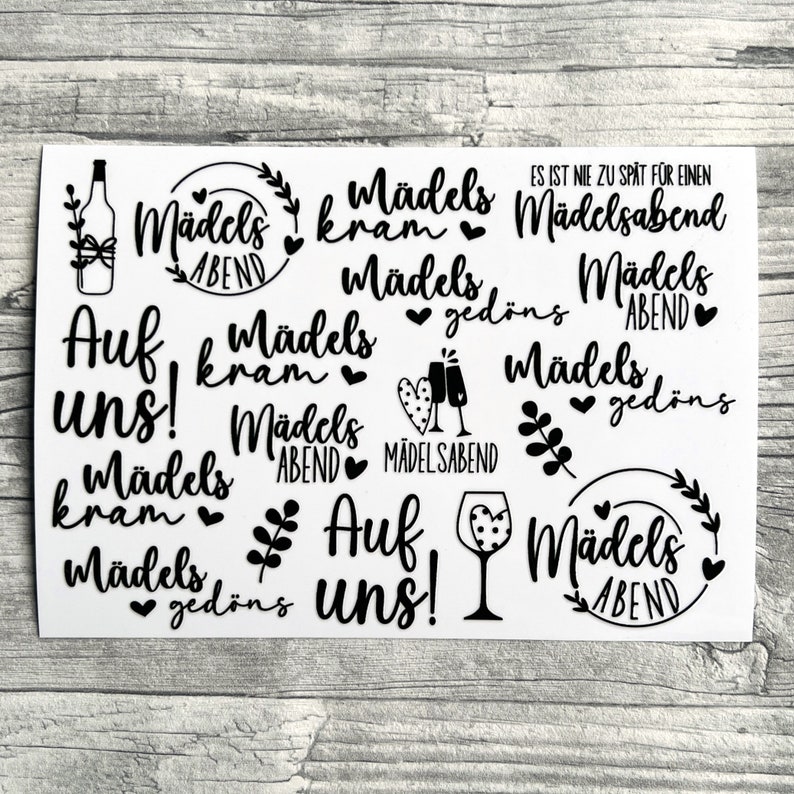 Mädels
ABEND
Mädels
kram
ES IST NIE ZU SPÄT FÜR EINEN
Mädelsabend
Mädels
gedöns
Mädels
ABEND
Auf
uns!
Mädels
kram
MÄDELSABEND
Mädels
gedöns
Mädels
ABEND
Mädels
kram
Auf
uns!
Mädels
ABEND
Mädels
gedöns